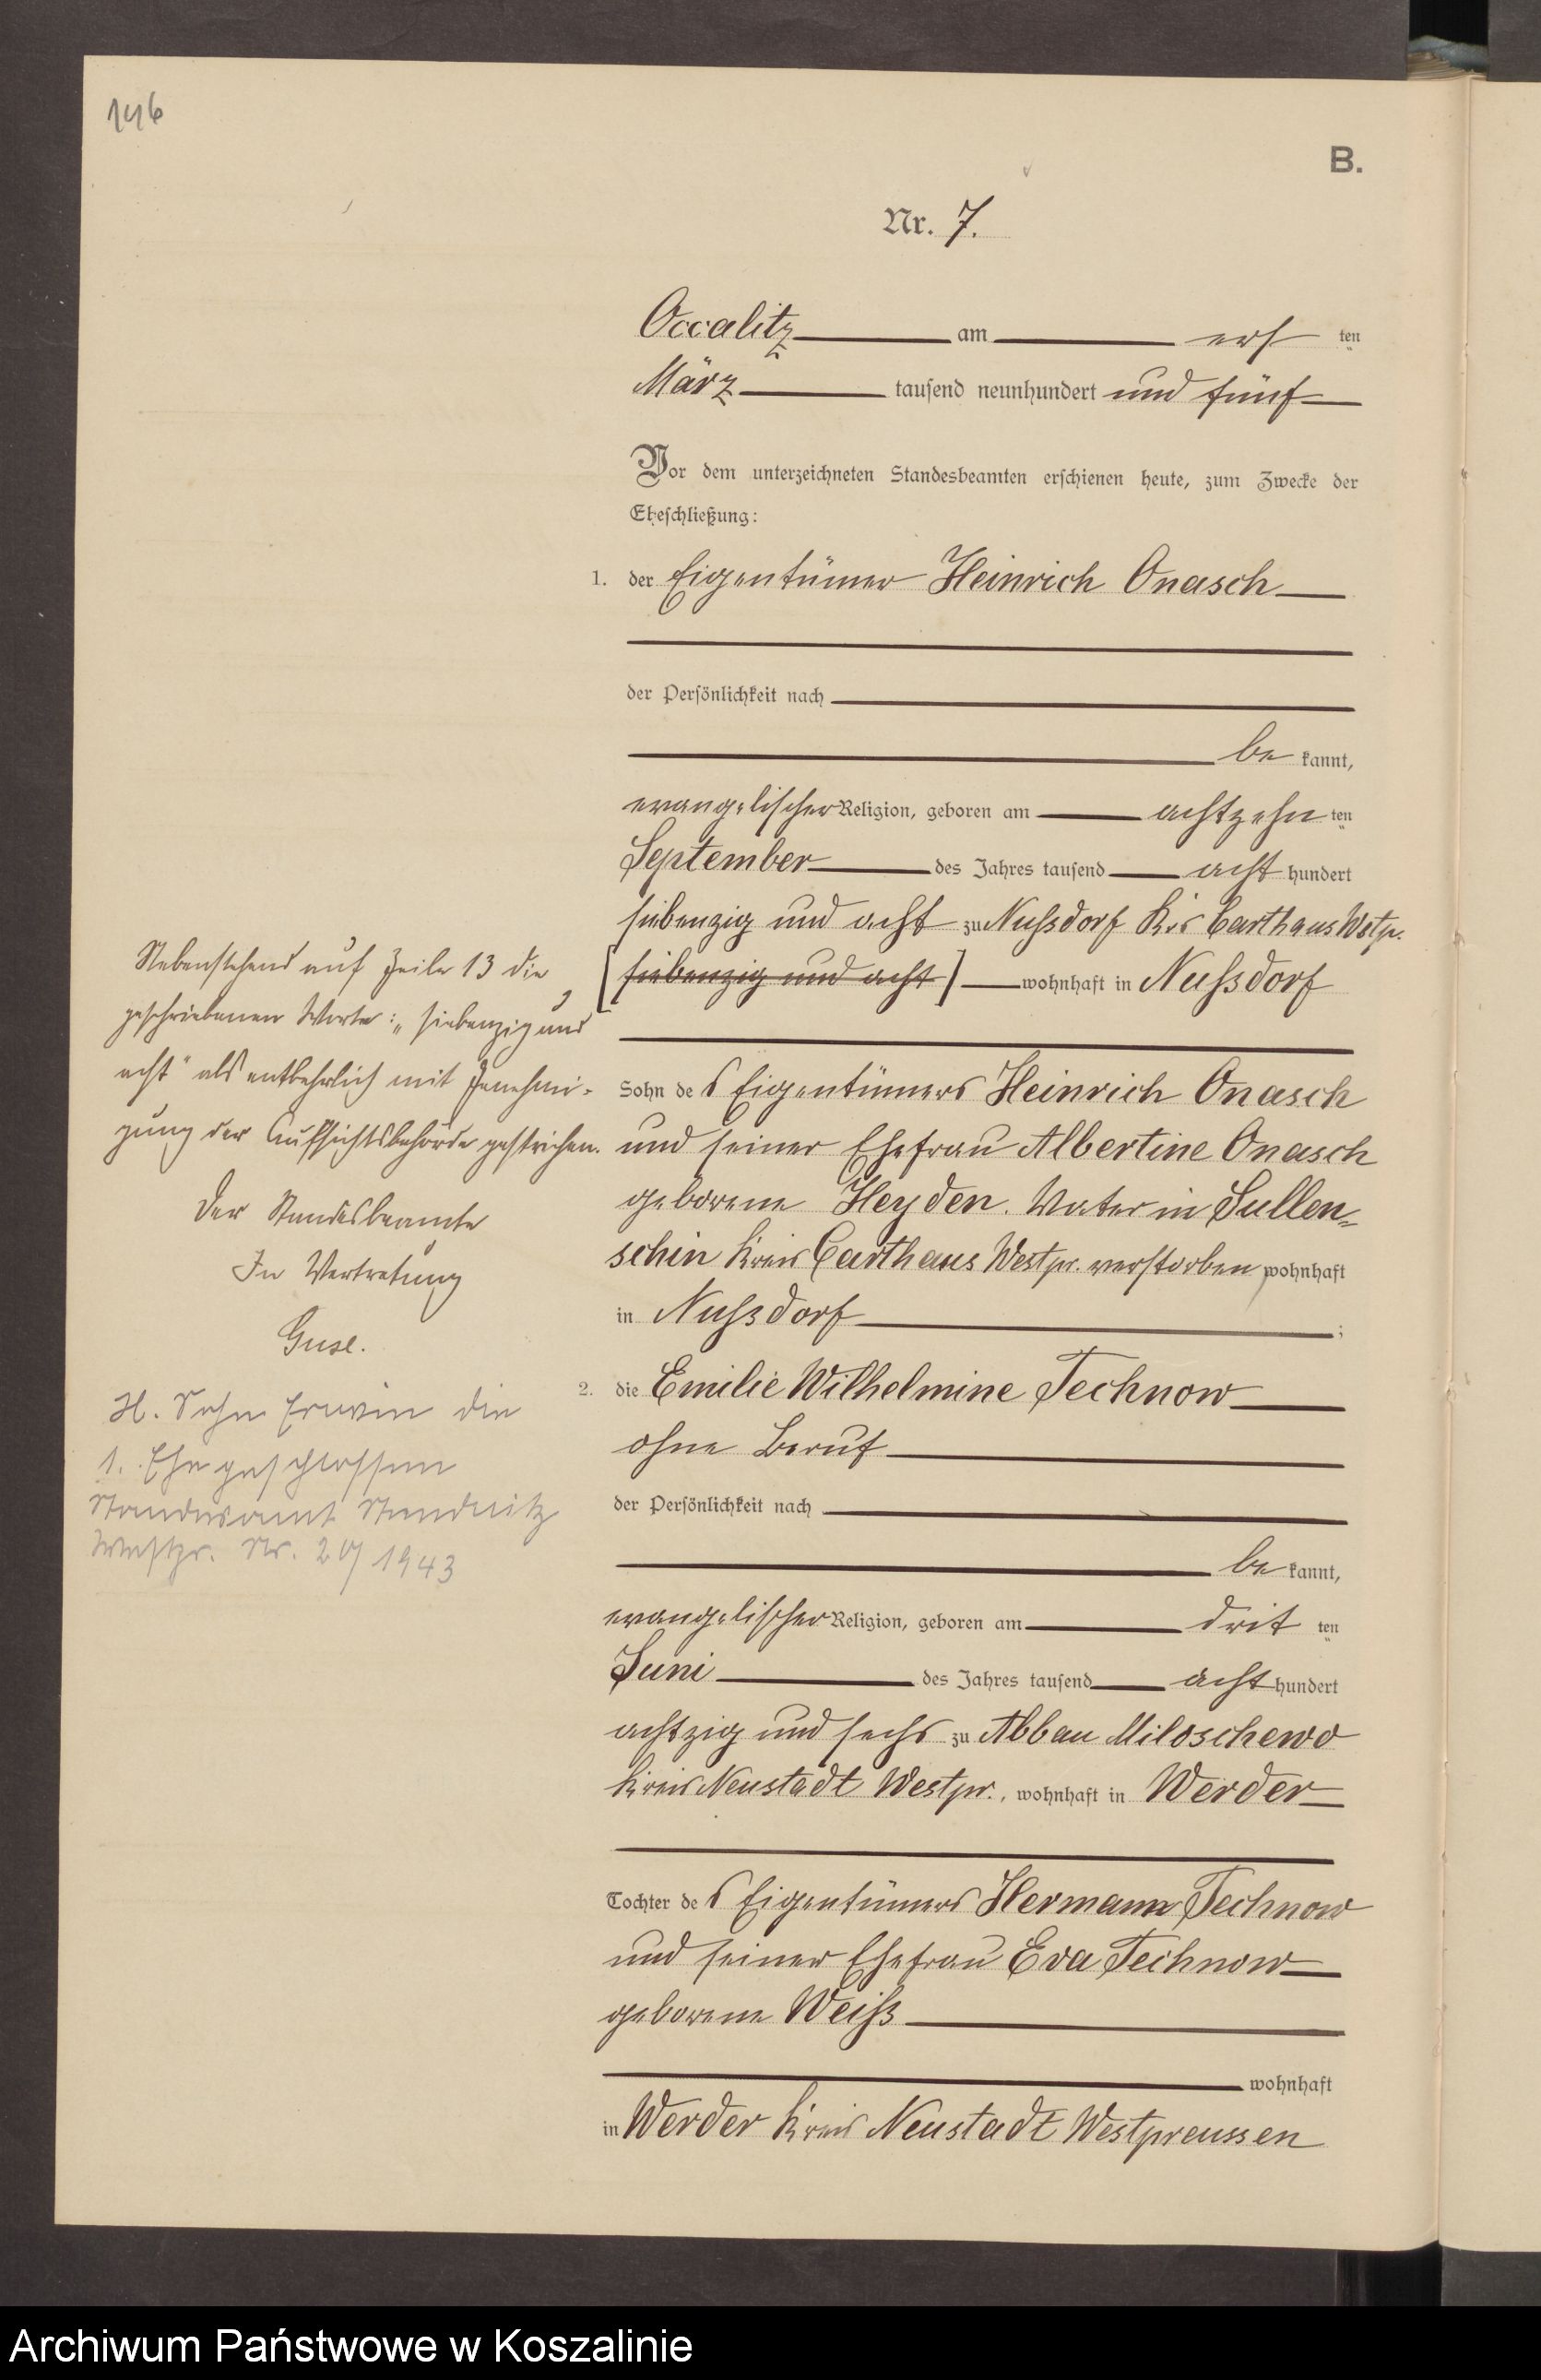 146
B.
Nr. 7.
Occalitz am ers ten
März tausend neunhundert und fünf
Vor dem unterzeichneten Standesbeamten erschienen heute, zum Zwecke der
Eheschließung:
1. der Eigentümer Heinrich Onasch
der Persönlichkeit nach
be kannt,
evangelischer Religion, geboren am achtzehn ten
September des Jahres tausend acht hundert
siebenzig und acht zu Nussdorf Krs Carthaus Wstp.
[siebenzig und acht] wohnhaft in Nussdorf
Sohn des Eigentümers Heinrich Onasch
und seiner Ehefrau Albertine Onasch
geborene Heyden. Vater in Sullen-
schin Kreis Carthaus Westpr. verstorben wohnhaft
in Nussdorf ;
2. die Emilie Wilhelmine Technow
ohne Beruf
der Persönlichkeit nach
be kannt,
evangelischer Religion, geboren am drit ten
Juni des Jahres tausend acht hundert
achtzig und sechs zu Abbau Miloschewo
Kreis Neustadt Westpr., wohnhaft in Werder
Tochter des Eigentümers Hermann Technow
und seiner Ehefrau Eva Technow
geborene Weiss
wohnhaft
in Werder Kreis Neustadt Westpreussen
Nebenstehend auf Zeile 13 die
geschriebenen Worte: „siebenzig und
acht" als entbehrlich mit Genehmi-
gung der Aufsichtsbehörde gestrichen.
Der Standesbeamte
In Vertretung
Guse.
H. Sohn Erwin die
1. Ehe geschlossen
Standesamt Stendnitz
Westpr. Nr. 20/1943
Archiwum Państwowe w Koszalinie